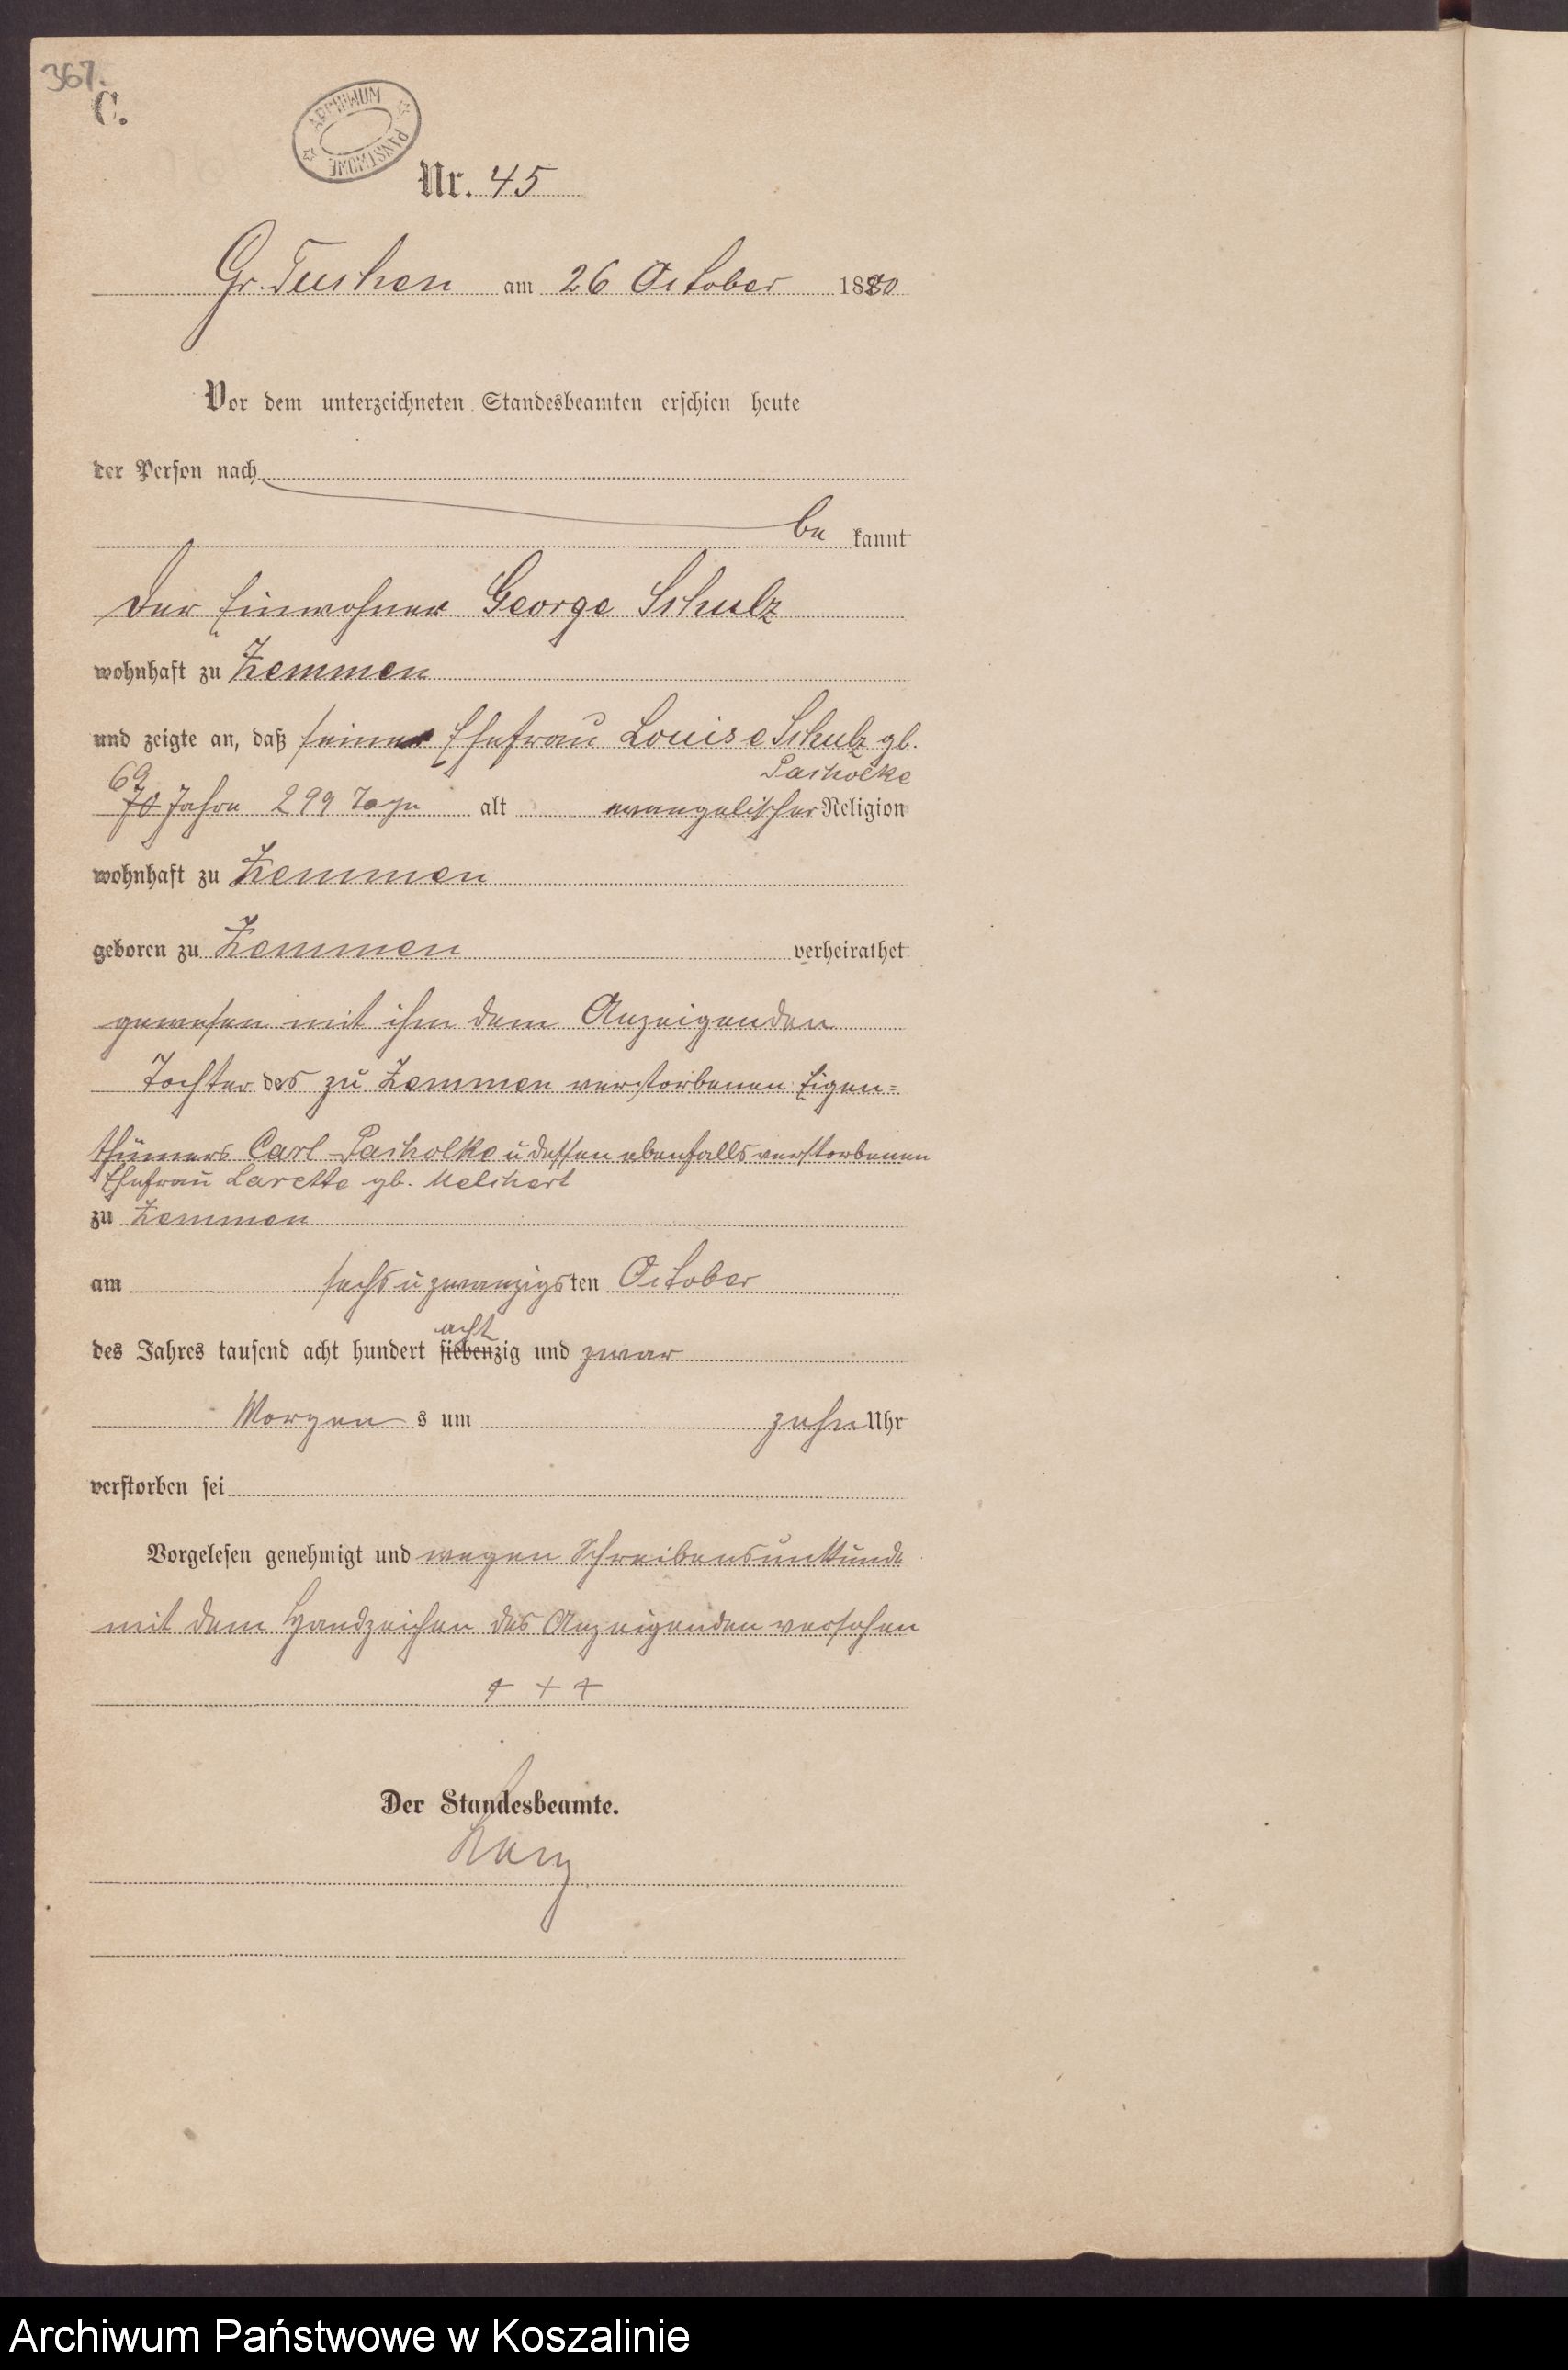 367.
C.
ARCHIWUM PAŃSTWOWE
Nr. 45
Gr. Tuchen am 26 October 1880
Vor dem unterzeichneten Standesbeamten erschien heute
der Person nach
be kannt
der Einwohner George Schulz
wohnhaft zu Zemmen
und zeigte an, daß seine Ehefrau Louise Schulz gb.
Pacholke
69
70 Jahre 299 Tage alt evangelischer Religion
wohnhaft zu Zemmen
geboren zu Zemmen verheirathet
gewesen mit ihm dem Anzeigenden
Tochter des zu Zemmen verstorbenen Eigen=
thümers Carl Pacholke u dessen ebenfalls verstorbenen
Ehefrau gb. Melchert
zu Zemmen
am sechs u zwanzigsten October
acht
des Jahres tausend acht hundert siebenzig und zwar
Morgen s um zehn Uhr
verstorben sei
Vorgelesen genehmigt und wegen Schreibensunkunde
mit dem Handzeichen des Anzeigenden versehen
+ + +
Der Standesbeamte.
Archiwum Państwowe w Koszalinie